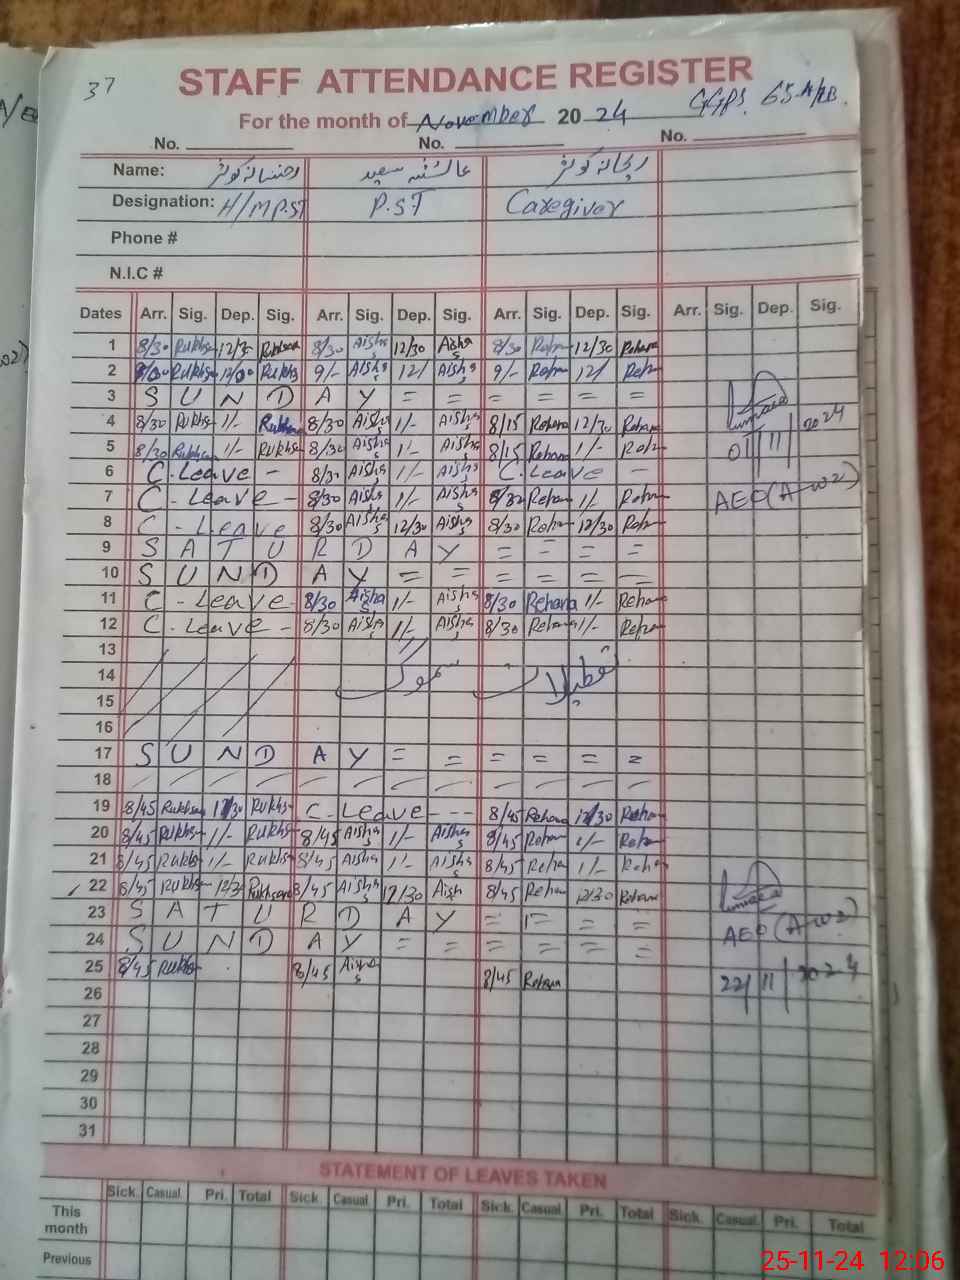 37
STAFF ATTENDANCE REGISTER
For the month of November 2024 GGPS 65-A/EB.
No. No. No.
Name: رخسانہ کوثر عائشہ سعید ریحانہ کوثر
Designation: H/M P.ST P.S.T Caregiver
Phone #
N.I.C #
Dates Arr. Sig. Dep. Sig. Arr. Sig. Dep. Sig. Arr. Sig. Dep. Sig. Arr. Sig. Dep. Sig.
1 8/30 Rukhsa 12/30 Rukhsana 8/30 Aisha S 12/30 Aisha S 8/30 Rehan 12/30 Rehana
2 Rukhsa Rukhs 9/- Aisha S 12/ Aisha S 9/- Rehn 12/ Rehn
3 S U N D A Y = = = = = =
4 8/30 Rukhs 1/- Rukhsa 8/30 Aisha S 1/- Aisha S 8/15 Rehana 12/30 Rehana
5 8/30 Rukhsa 1/- Rukhsa 8/30 Aisha S 1/- Aisha S 8/15 Rehana 1/- Rehn
01/11/2024
6 C. Leave - 8/30 Aisha S 1/- Aisha S C. Leave -
7 C - Leave - 8/30 Aisha S 1/- Aisha S 8/30 Rehan 1/- Rehan AEO (A-W2)
8 C - Leave 8/30 Aisha S 12/30 Aisha S 8/30 Rehan 12/30 Rehn
9 S A T U R D A Y = = = =
10 S U N D A Y = = = = = =
11 C - Leave - 8/30 Aisha S 1/- Aisha S 8/30 Rehana 1/- Rehana
12 C - Leave - 8/30 Aisha S 1/- Aisha S 8/30 Rehana 1/- Rehan
13
14 سموگ تعطیلات
15
16
17 S U N D A Y = = = = = =
18
19 8/45 Rukhsan 12/30 Rukhs C - Leave --- 8/45 Rehana 12/30 Rehan
20 8/45 Rukhs 1/- Rukhs 8/45 Aisha S 1/- Aisha S 8/45 Rehan 1/- Rehn
21 8/45 Rukhs 1/- Rukhs 8/45 Aisha 1/- Aisha S 8/45 Reha 1/- Reha
22 8/45 Rukhs 12/30 Rukhsana 8/45 Aisha S 12/30 Aish 8/45 Rehan 12/30 Rehana
23 S A T U R D A Y = = = = AEO (A-W2)
24 S U N D A Y = = = = = =
25 8/45 Rukhs 8/45 Aisha S 8/45 Rehana 22/11/2024
26
27
28
29
30
31
STATEMENT OF LEAVES TAKEN
Sick. Casual. Pri. Total Sick. Casual. Pri. Total Sick. Casual. Pri. Total Sick. Casual. Pri. Total
This month
Previous
25-11-24 12:06